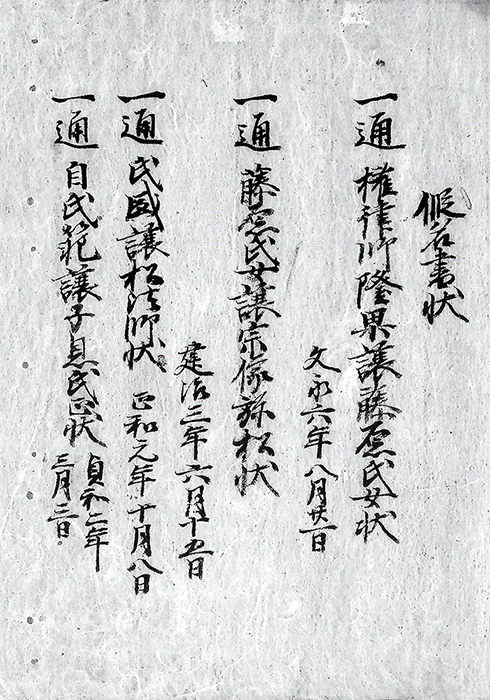 假名書状
一通 權律師隆果譲藤原氏女状
文永六年八月廿一日
一通 藤原氏女譲宗像弥松状
建治三年六月十五日
一通 氏盛譲松法師状 正和元年十月八日
一通 自氏範譲子息氏正状 貞和二年
三月三日